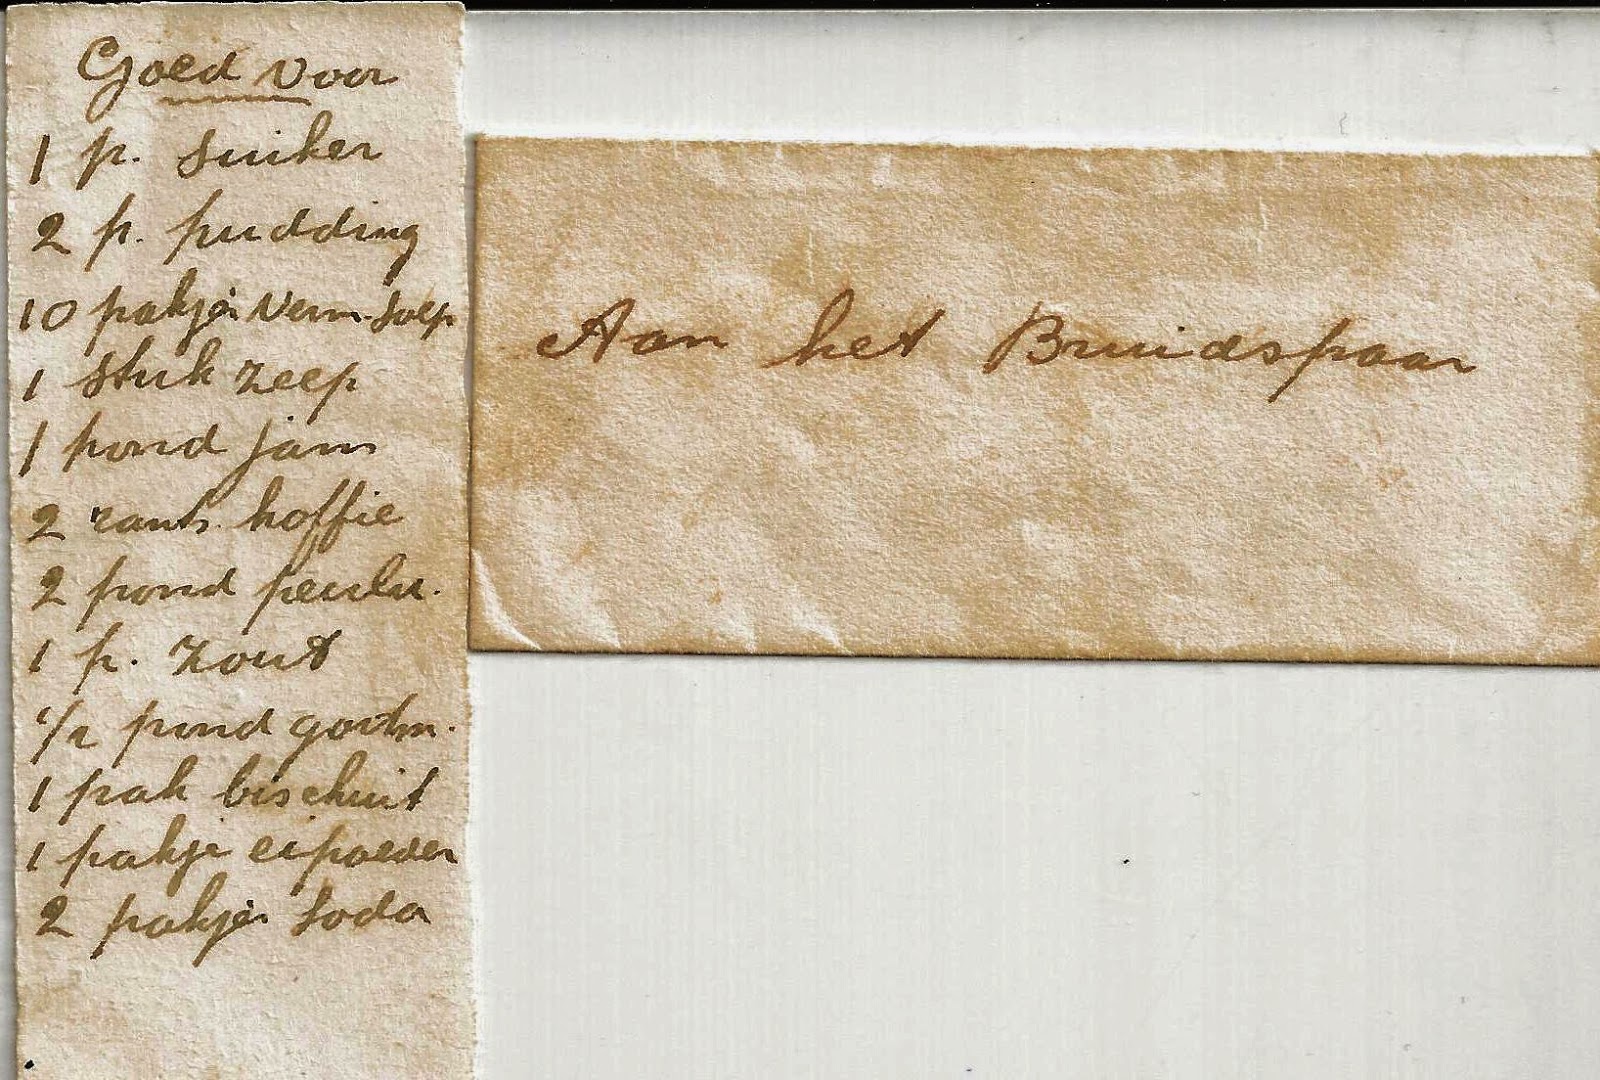 Goed voor
1 p. suiker
2 p. pudding
10 pakjes Verm. Soep
1 stuk zeep
1 pond jam
2 rants. koffie
2 pond peulv.
1 p. zout
1/2 pond gortm.
1 pak bischuit
1 pakje eipoeder
2 pakjes soda
Aan het Bruidspaar